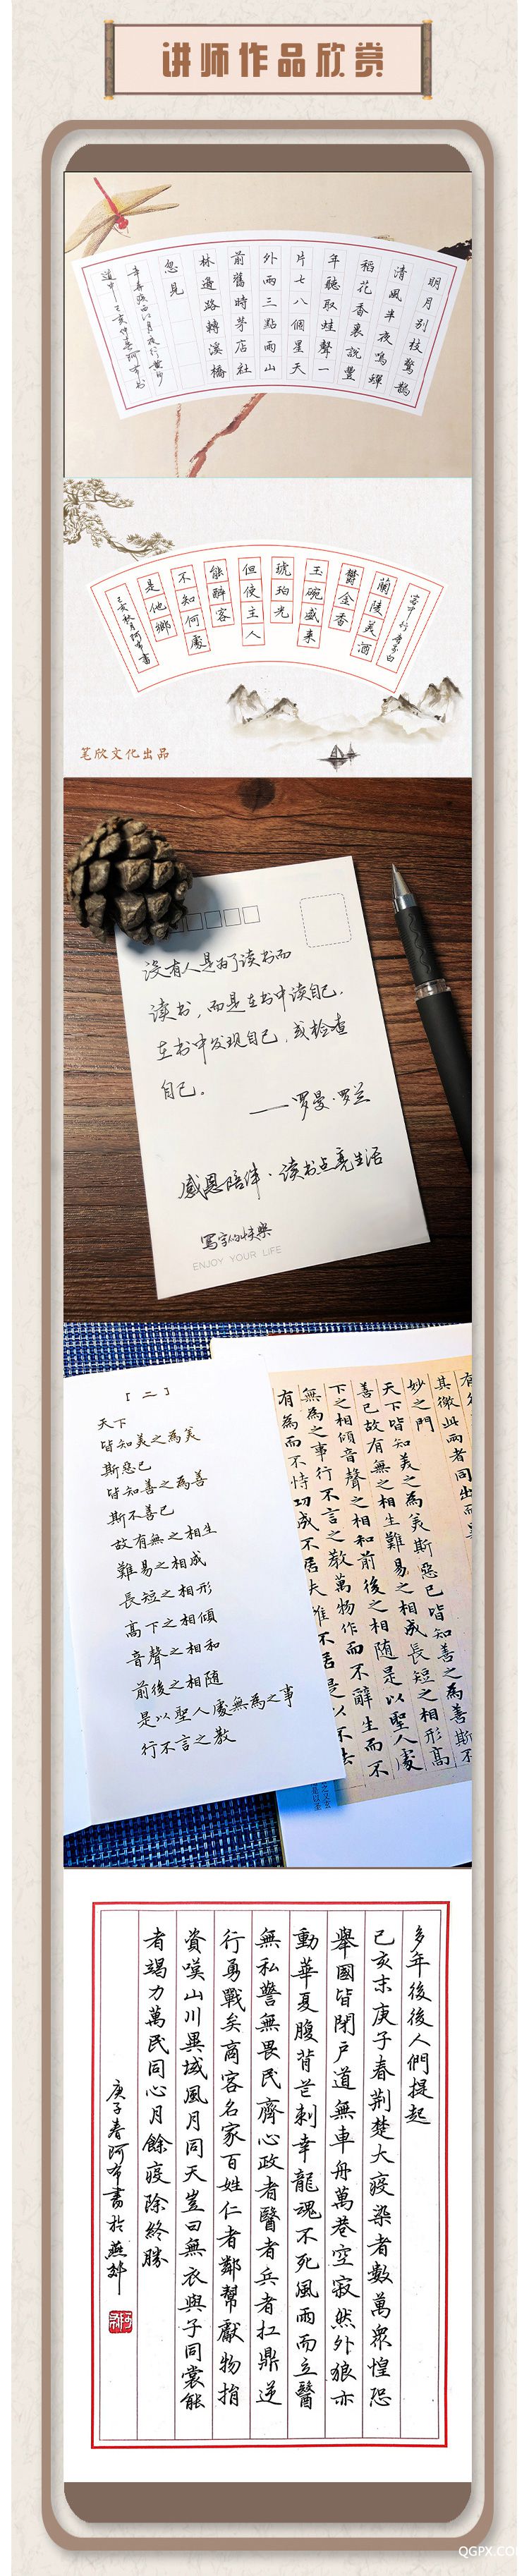 讲师作品欣赏
明月别枝驚鵲
清風半夜鳴蟬
稻花香裏說豐
年聽取蛙聲一
片七八個星天
外兩三點雨山
前舊時茅店社
林邊路轉溪橋
忽見
辛弃疾西江月夜行黄沙
道中 己亥仲冬阿布书
客中行 李白
蘭陵美酒
鬱金香
玉碗盛来
琥珀光
但使主人
能醉客
不知何處
是他鄉
己亥秋月阿布書
笔欣文化出品
没有人是为了读书而
读书，而是在书中读自己，
在书中发现自己，或检查
自己。
——罗曼·罗兰
感恩陪伴·读书点亮生活
寫字的快樂
ENJOY YOUR LIFE
[ 二 ]
天下
皆知美之為美
斯惡已
皆知善之為善
斯不善已
故有無之相生
難易之相成
長短之相形
高下之相傾
音聲之相和
前後之相隨
是以聖人處無為之事
行不言之教
其徼此兩者同出而
妙之門
天下皆知美之為美斯惡已皆知善之為善斯不
善已故有無之相生難易之相成長短之相形高
下之相傾音聲之相和前後之相隨是以聖人處
無為之事行不言之教萬物作而不辭生而不
有為而不恃功成不居夫唯不居是以不去
多年後後人們提起
己亥末庚子春荆楚大疫染者數萬衆惶恐
舉國皆閉戶道無車舟萬巷空寂然外狼亦
動華夏腹背芒刺幸龍魂不死風雨而立醫
無私警無畏民齊心政者醫者兵者扛鼎逆
行勇戰矣商客名家百姓仁者鄰幫獻物捐
資嘆山川異域風月同天豈曰無衣與子同裳能
者竭力萬民同心月餘疫除終勝
庚子春阿布書於燕郊
QGPX.CO